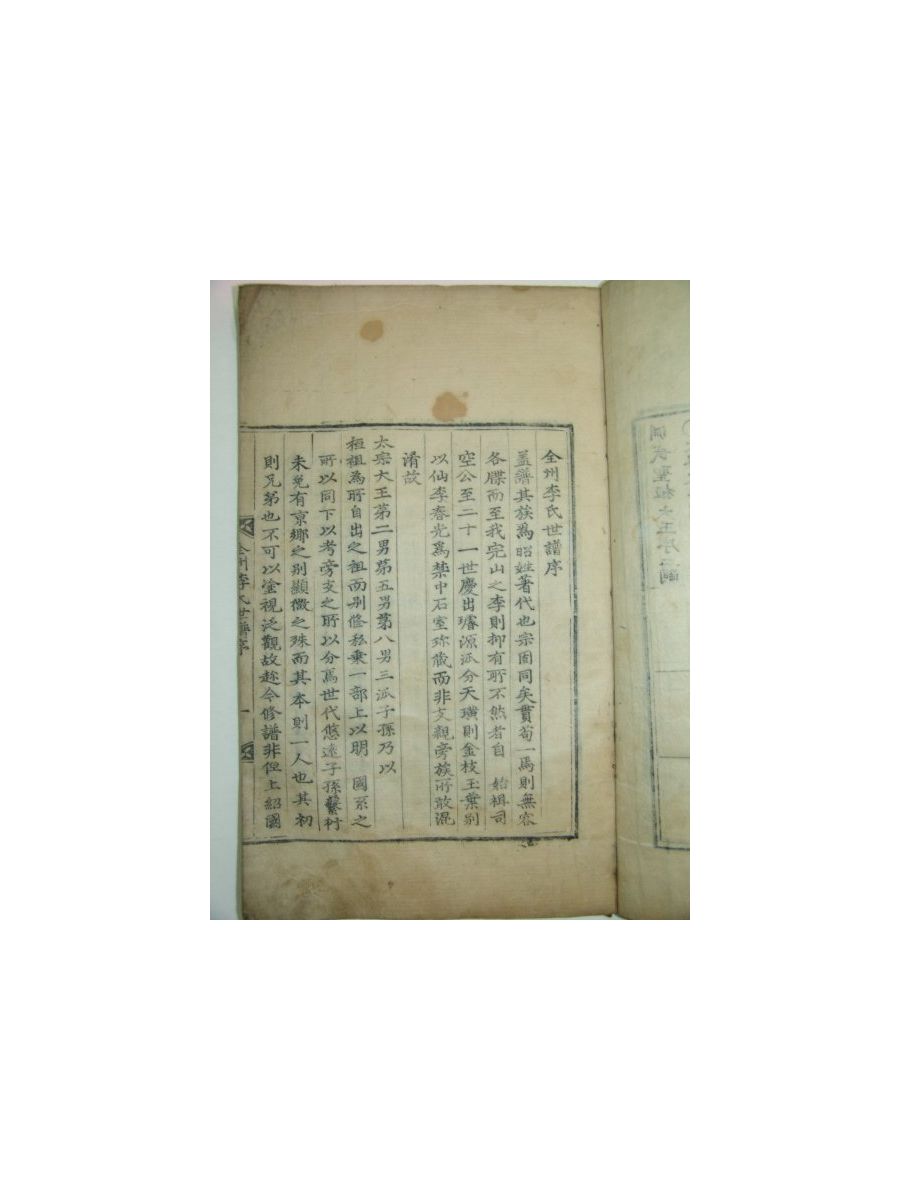 全州李氏世譜序
盖譜其族為昭姓著代也宗固同矣貫苟一焉則無容
各牒而至我完山之李則抑有所不然者自 始祖司
空公至二十一世慶出璿源派分天璜則金枝玉葉别
以仙李春光為禁中石室珍藏而非支親旁族所敢混
淆故
太宗大王第二男第五男第八男三派子孫乃以
桓祖為所自出之祖而别修私乗一部上以明 國系之
所以同下以考旁支之所以分焉世代悠遠子孫蘩衍
未免有京鄉之别顯微之殊而其本則一人也其初
則兄弟也不可以塗視泛觀故趁今修譜非但上紹國
全州李氏世譜序 一